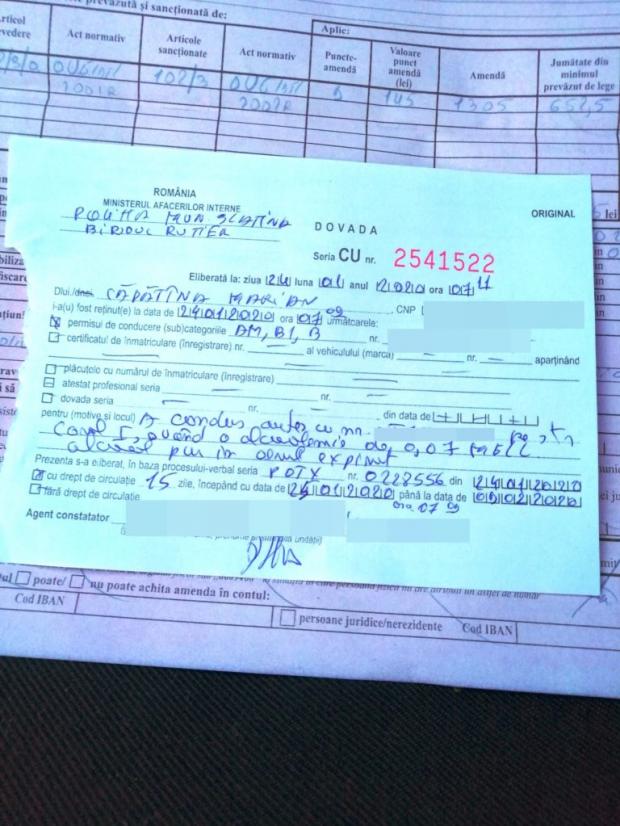 prevăzută și sancționată de:
Aplic:
Articol
prevedere
Act normativ
Articole
sancționate
Act normativ
Puncte-
amendă
Valoare
punct
amendă
(lei)
Amendă
Jumătate din
minimul
prevăzut de lege
OUG 195/ 102/3 OUG 195/ 9 145 1305 652,5
2002R 2002R
ROMÂNIA
MINISTERUL AFACERILOR INTERNE
ORIGINAL
POLIȚIA MUN SLATINA
BIROUL RUTIER
DOVADA
Seria CU nr. 2541522
Eliberată la: ziua 24 luna 01 anul 2020 ora 07 11
Dlui./dnei CĂPĂȚÎNĂ MARIAN
i-a(u) fost reținut(e) la data de 24012020 ora 07 09 următoarele: , CNP
permisul de conducere (sub)categoriile AM, B1, B nr.
certificatul de înmatriculare (înregistrare) nr. al vehiculului (marca) nr. aparținând
plăcuțele cu numărul de înmatriculare (înregistrare)
atestat profesional seria nr.
dovada seria nr. din data de
pentru (motive și locul) A condus auto cu nr. pe
având o alcoolemie de 0,07 mg/l
alcool pur în aerul expirat
Prezenta s-a eliberat, în baza procesului-verbal seria POTX nr. 0228556 din 24012020
cu drept de circulație 15 zile, începând cu data de 24012020 până la data de 08022020
fără drept de circulație ora 07 09
Agent constatator
poate/ nu poate achita amenda în contul:
Cod IBAN
persoane juridice/nerezidente Cod IBAN